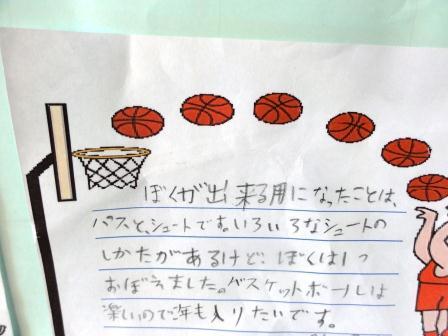 ぼくが出来る用になったことは、
パスと、シュートです。いろいろなシュートの
しかたがあるけど、ぼくは1つ
おぼえました。バスケットボールは
楽しいので年も入りたいです。